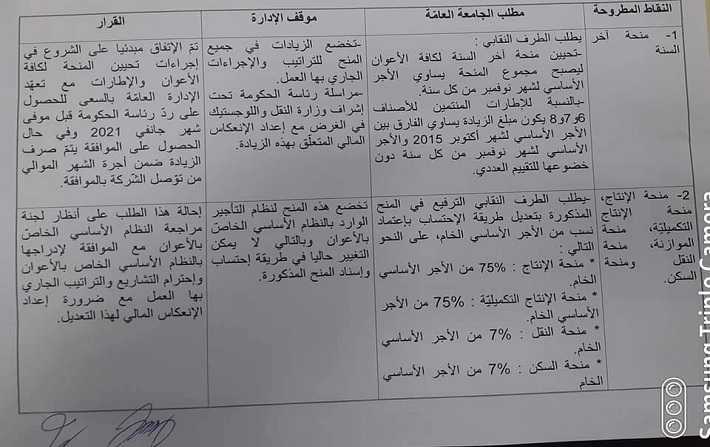 النقاط المطروحة
مطلب الجامعة العامّة
موقف الإدارة
القرار
1- منحة آخر
السنة
يطلب الطرف النقابي :
-تحيين منحة آخر السنة لكافة الأعوان
ليصبح مجموع المنحة يساوي الأجر
الأساسي لشهر نوفمبر من كل سنة.
-بالنسبة للإطارات المنتمين للأصناف
6و7و8 يكون مبلغ الزيادة يساوي الفارق بين
الأجر الأساسي لشهر أكتوبر 2015 والأجر
الأساسي لشهر نوفمبر من كل سنة دون
خضوعها للتقييم العددي.
-تخضع الزيادات في جميع
المنح للتراتيب والإجراءات
الجاري بها العمل.
-مراسلة رئاسة الحكومة تحت
إشراف وزارة النقل واللوجستيك
في الغرض مع إعداد الإنعكاس
المالي المتعلّق بهذه الزيادة.
تمّ الإتفاق مبدئيا على الشروع في
إجراءات تحيين المنحة لكافة
الأعوان والإطارات مع تعهّد
الإدارة العامّة بالسعى للحصول
على ردّ رئاسة الحكومة قبل موفى
شهر جانفي 2021 وفي حال
الحصول على الموافقة يتمّ صرف
الزيادة ضمن أجرة الشهر الموالي
من توّصل الشّركة بالموافقة.
2- منحة الإنتاج،
منحة الإنتاج
التكميليّة، منحة
الموازنة، منحة
النقل ومنحة
السكن.
-يطلب الطرف النقابي الترفيع في المنح
المذكورة بتعديل طريقة الإحتساب بإعتماد
نسب من الأجر الأساسي الخام، على النحو
التالي :
* منحة الإنتاج : 75% من الأجر الأساسي
الخام.
* منحة الإنتاج التكميليّة : 75% من الأجر
الأساسي الخام.
* منحة النقل : 7% من الأجر الأساسي
الخام.
* منحة السكن : 7% من الأجر الأساسي
الخام
تخضع هذه المنح لنظام التأجير
الوارد بالنظام الأساسي الخاصّ
بالأعوان وبالتالي لا يمكن
التغيير حاليا في طريقة إحتساب
وإسناد المنح المذكورة.
إحالة هذا الطلب على أنظار لجنة
مراجعة النظام الأساسي الخاصّ
بالأعوان مع الموافقة لإدراجها
بالنظام الأساسي الخاص بالأعوان
وإحترام التشاريع والتراتيب الجاري
بها العمل مع ضرورة إعداد
الإنعكاس المالي لهذا التعديل.
Samsung Triple Camera